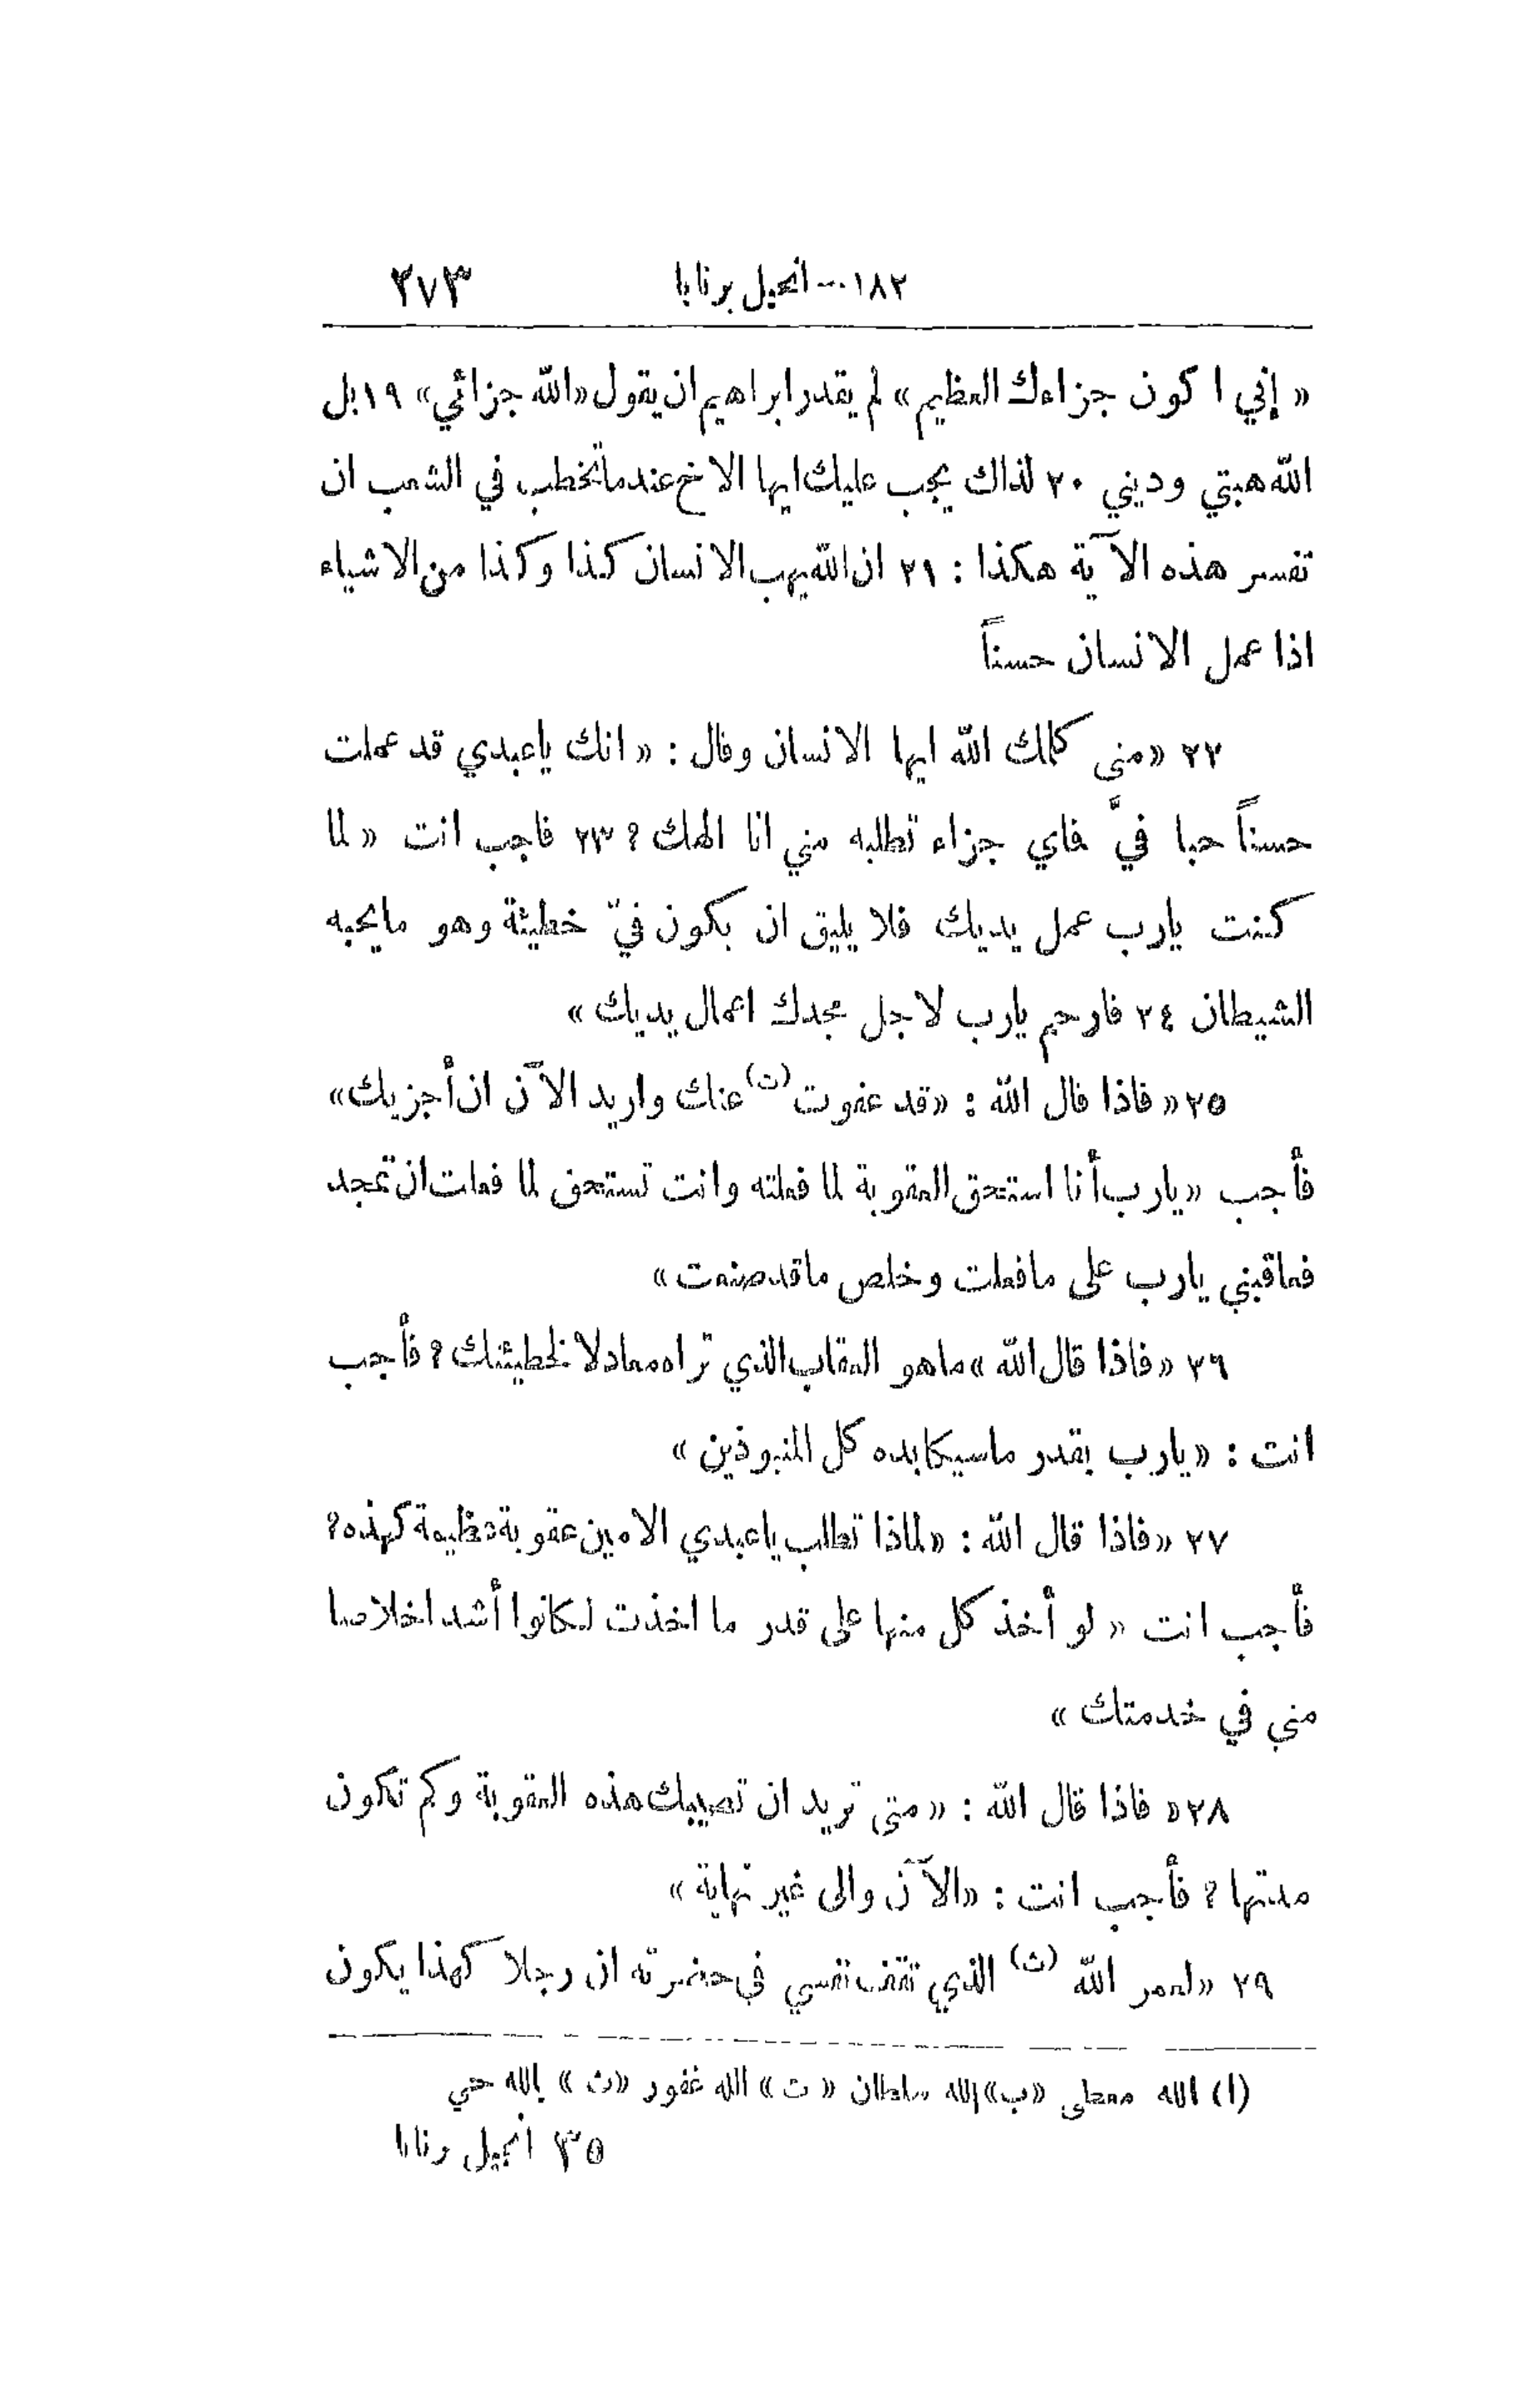 ١٨٢ -- انجيل برنابا ٢٧٣
« إني اكون جزاءك العظيم » لم يقدر ابراهيم ان يقول «الله جزائي» ١٩ بل
الله هبتي وديني ٢٠ لذلك يجب عليك ايها الاخ عندما تخطب في الشعب ان
تفسر هذه الآية هكذا : ٢١ ان الله يهب الانسان كذا وكذا من الاشياء
اذا عمل الانسان حسناً
٢٢ «متى كلمك الله ايها الانسان وقال : « انك ياعبدي قد عملت
حسناً حبا فيَّ فاي جزاء تطلبه مني انا الهك ? ٢٣ فاجب انت « لما
كنت يارب عمل يديك فلا يليق ان يكون فيّ خطيئة وهو مايحبه
الشيطان ٢٤ فارحم يارب لاجل مجدك اعمال يديك »
٢٥ « فاذا قال الله : «قد عفوت (ت) عنك واريد الآن ان أجزيك»
فأجب «يارب أنا استحق العقوبة لما فعلته وانت تستحق لما فعلت ان تمجد
فعاقبني يارب على مافعلت وخلص ماقد صنعت »
٢٦ «فاذا قال الله »ماهو العقاب الذي تراه معادلا لخطيئتك ? فأجب
انت : «يارب بقدر ماسيكابده كل المنبوذين »
٢٧ «فاذا قال الله : «لماذا تطلب ياعبدي الامين عقوبة عظيمة كهذه ?
فأجب انت « لو أخذ كل منها على قدر ما اخذت لكانوا أشد اخلاصا
مني في خدمتك »
٢٨ « فاذا قال الله : «متى تريد ان تصيبك هذه العقوبة وكم تكون
مدتها ? فأجب انت : «الآن والى غير نهاية »
٢٩ «لعمر الله (ث) الذي تقف نفسي في حضرته ان رجلا كهذا يكون
(ا) الله معطي «ب» الله سلطان « ت » الله غفور «ث » بالله حي
٣٥ أنجيل برنابا